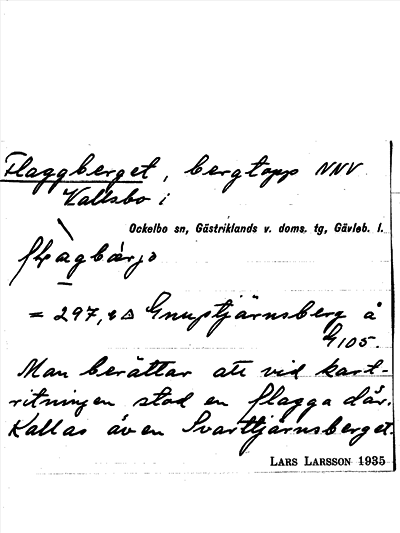 Flaggberget, bergtopp NNV
Vallsbo i
Ockelbo sn, Gästriklands v. doms. tg, Gävleb. l.
= 297,2 Δ Gnuptjärnsberg å
G 105.
Man berättar att vid kart-
ritningen stod en flagga där.
Kallas även Svarttjärnsberget.
LARS LARSSON 1935